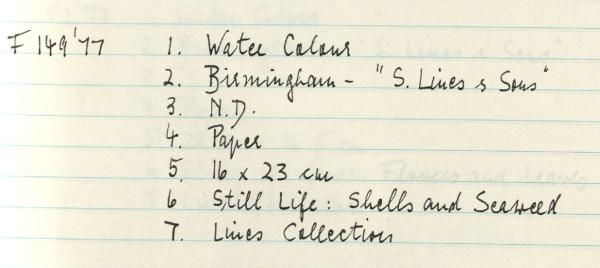 F 149'77 1. Water Colour
2. Birmingham - "S. Lines & Sons"
3. N.D.
4. Paper
5. 16 x 23 cm
6 Still Life: Shells and Seaweed
7. Lines Collection